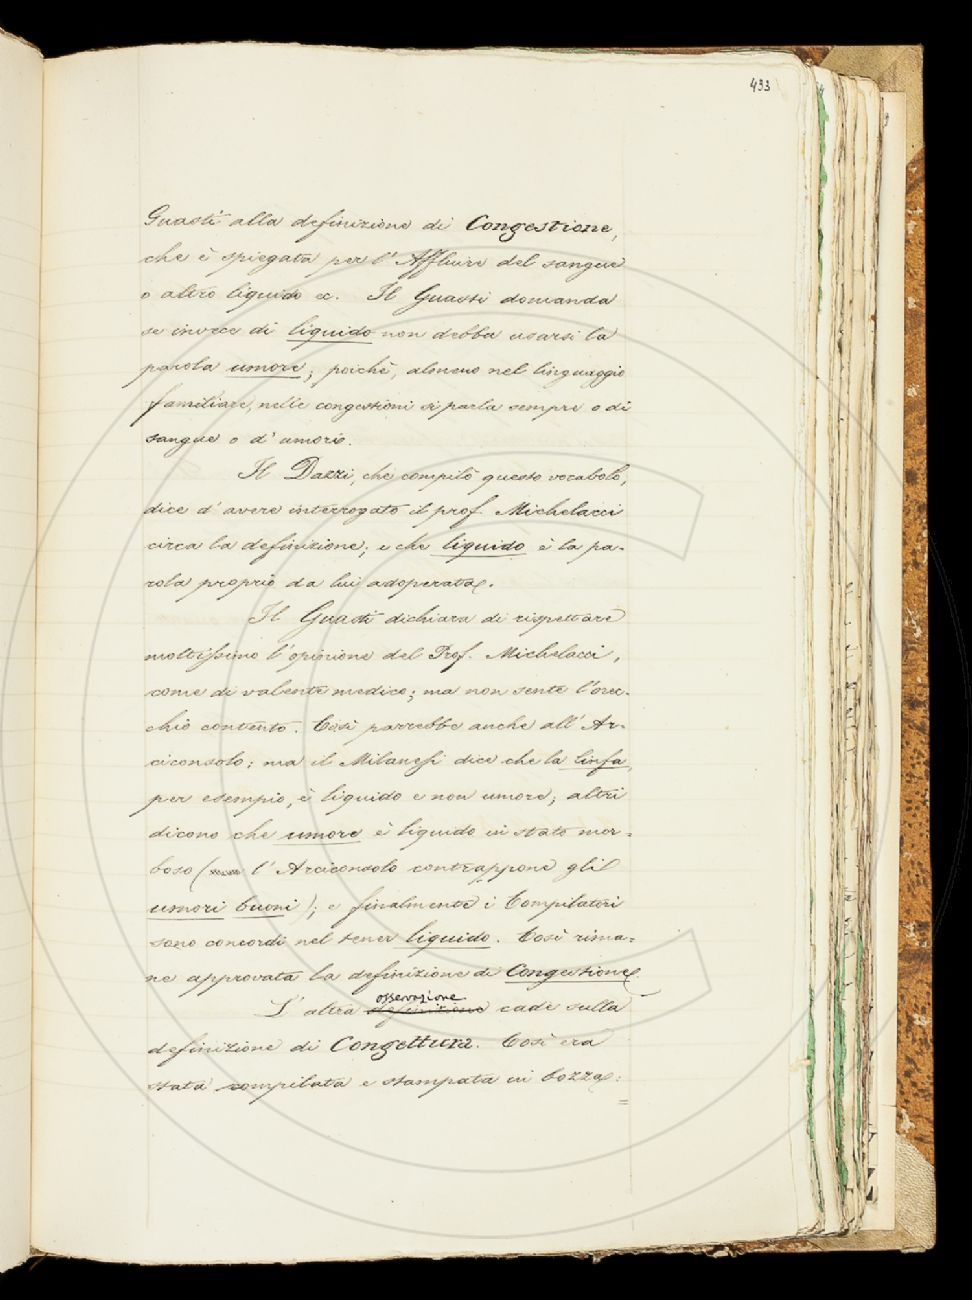 493
Guasti alla definizione di Congestione,
che è spiegata per l'Affluire del sangue
o altro liquido ec. Il Guasti domanda
se invece di liquido non debba usarsi la
parola umore; poichè, almeno nel linguaggio
familiare, nelle congestioni si parla sempre o di
sangue o d'umori.
Il Dazzi, che compilò questo vocabolo,
dice d'avere interrogato il prof. Michelacci
circa la definizione; e che liquido è la pa-
rola proprio da lui adoperata.
Il Guasti dichiara di rispettare
moltissimo l'opinione del Prof. Michelacci,
come di valente medico; ma non sente l'orec-
chio contento. Così parrebbe anche all'Ar-
ciconsolo; ma il Milanesi dice che la linfa,
per esempio, è liquido e non umore; altri
dicono che umore è liquido in stato mor-
boso ( l'Arciconsolo contrappone gli
umori buoni); e finalmente i Compilatori
sono concordi nel tener liquido. Così rima-
ne approvata la definizione di Congestione.
osservazione
L'altra definizione cade sulla
definizione di Congettura. Così era
stata compilata e stampata in bozza: